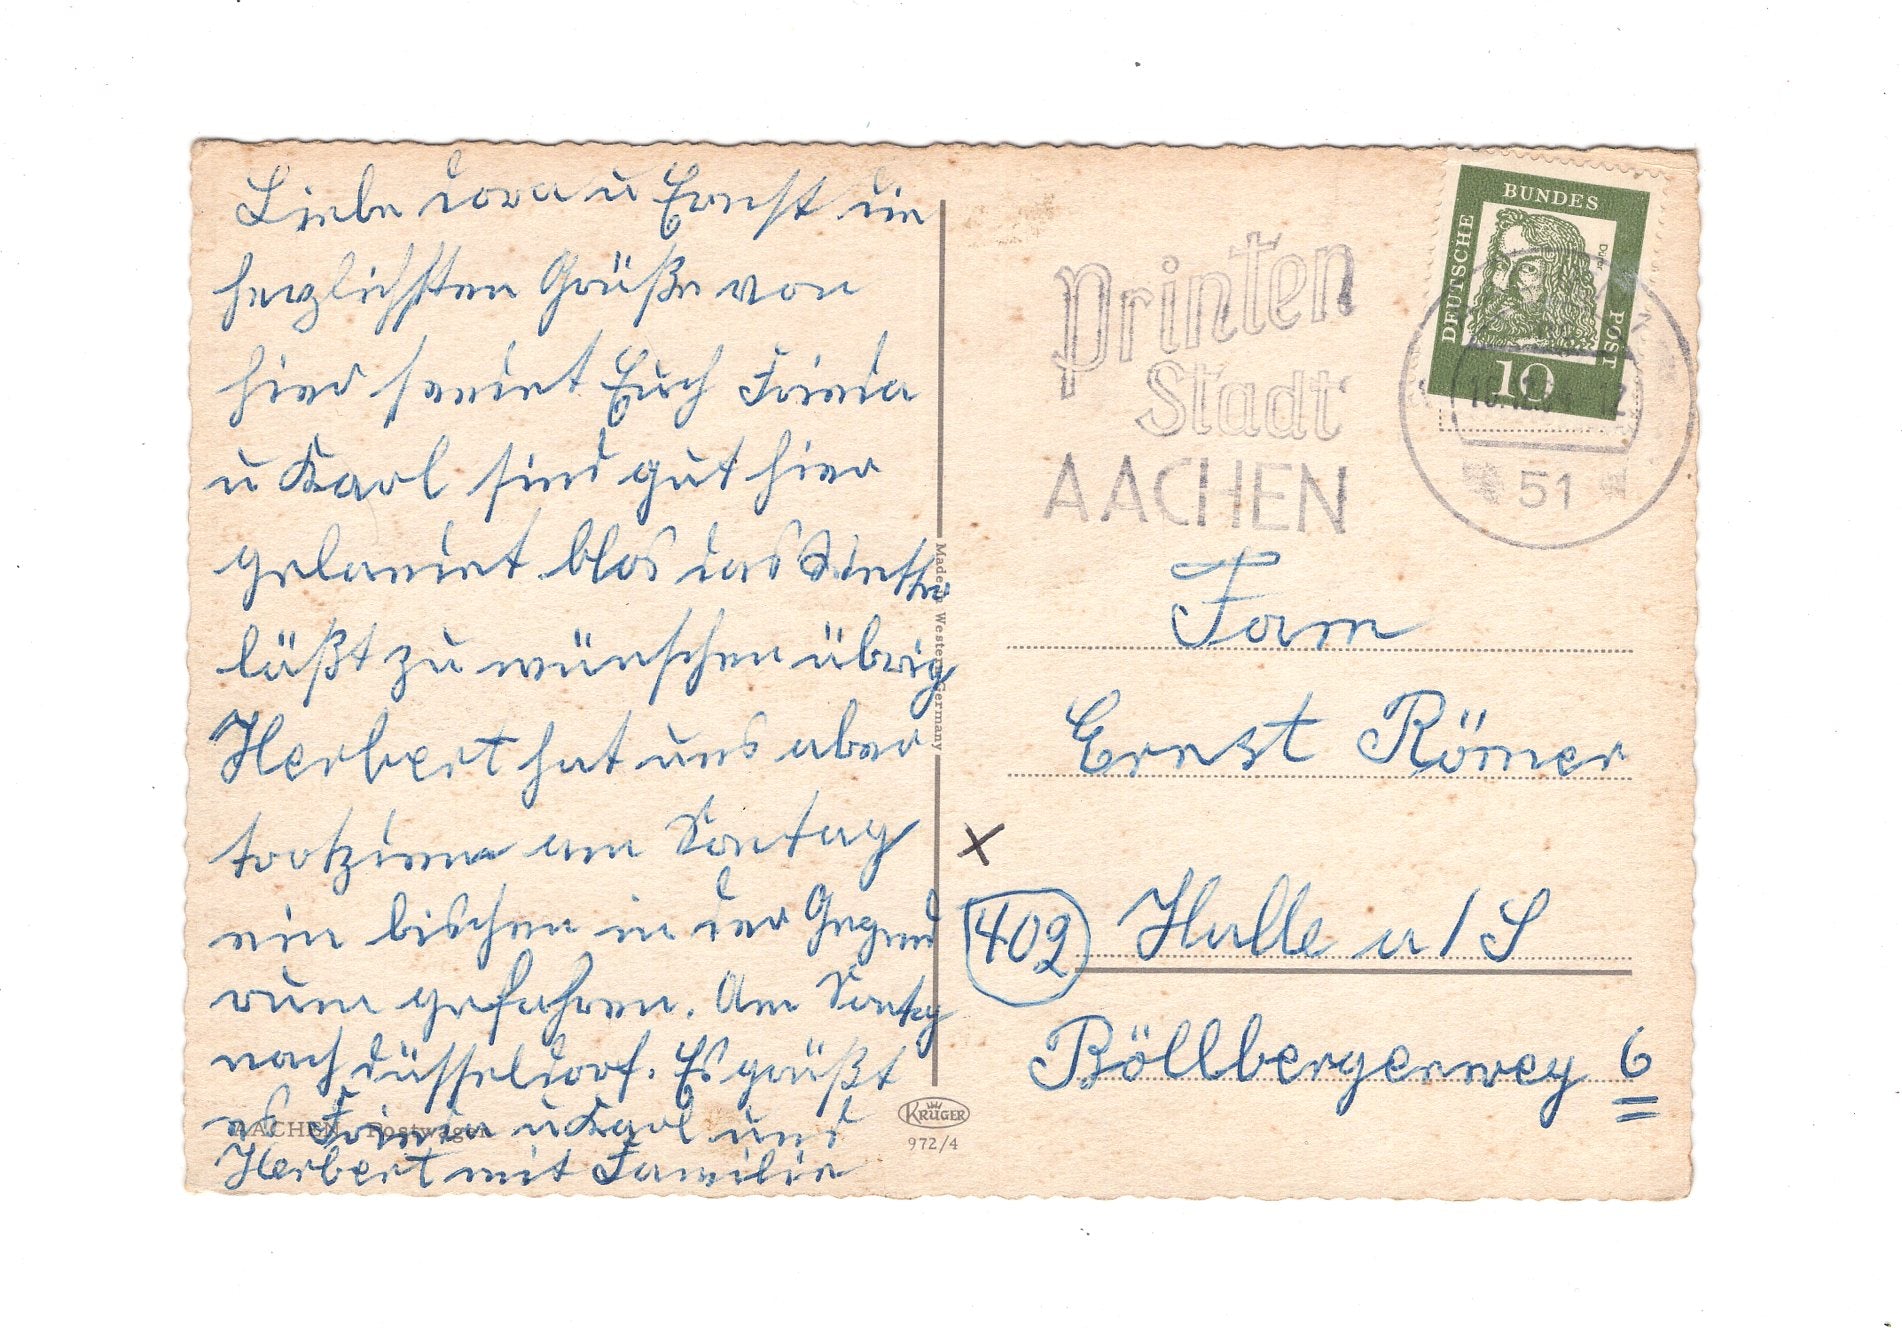 Liebe Dora u Ernst die
herzlichsten Grüße von
hier sendet Euch Frieda
u Karl sind gut hier
gelandet blos das Wetter
läßt zu wünschen übrig
Herbert hat uns aber
trotzdem am Sontag
ein bischen in der Gegend
rum gefahren. Am Sontag
nach Düsseldorf. Es grüßt
Frieda u Karl und
Herbert mit Familie
AACHEN Postwagen
Made in Western Germany
KRÜGER
972/4
Printen
Stadt
AACHEN
DEUTSCHE BUNDES POST
Dürer
10
51
Fam
Ernst Römer
x
402 Halle a/S
Böllbergerweg 6